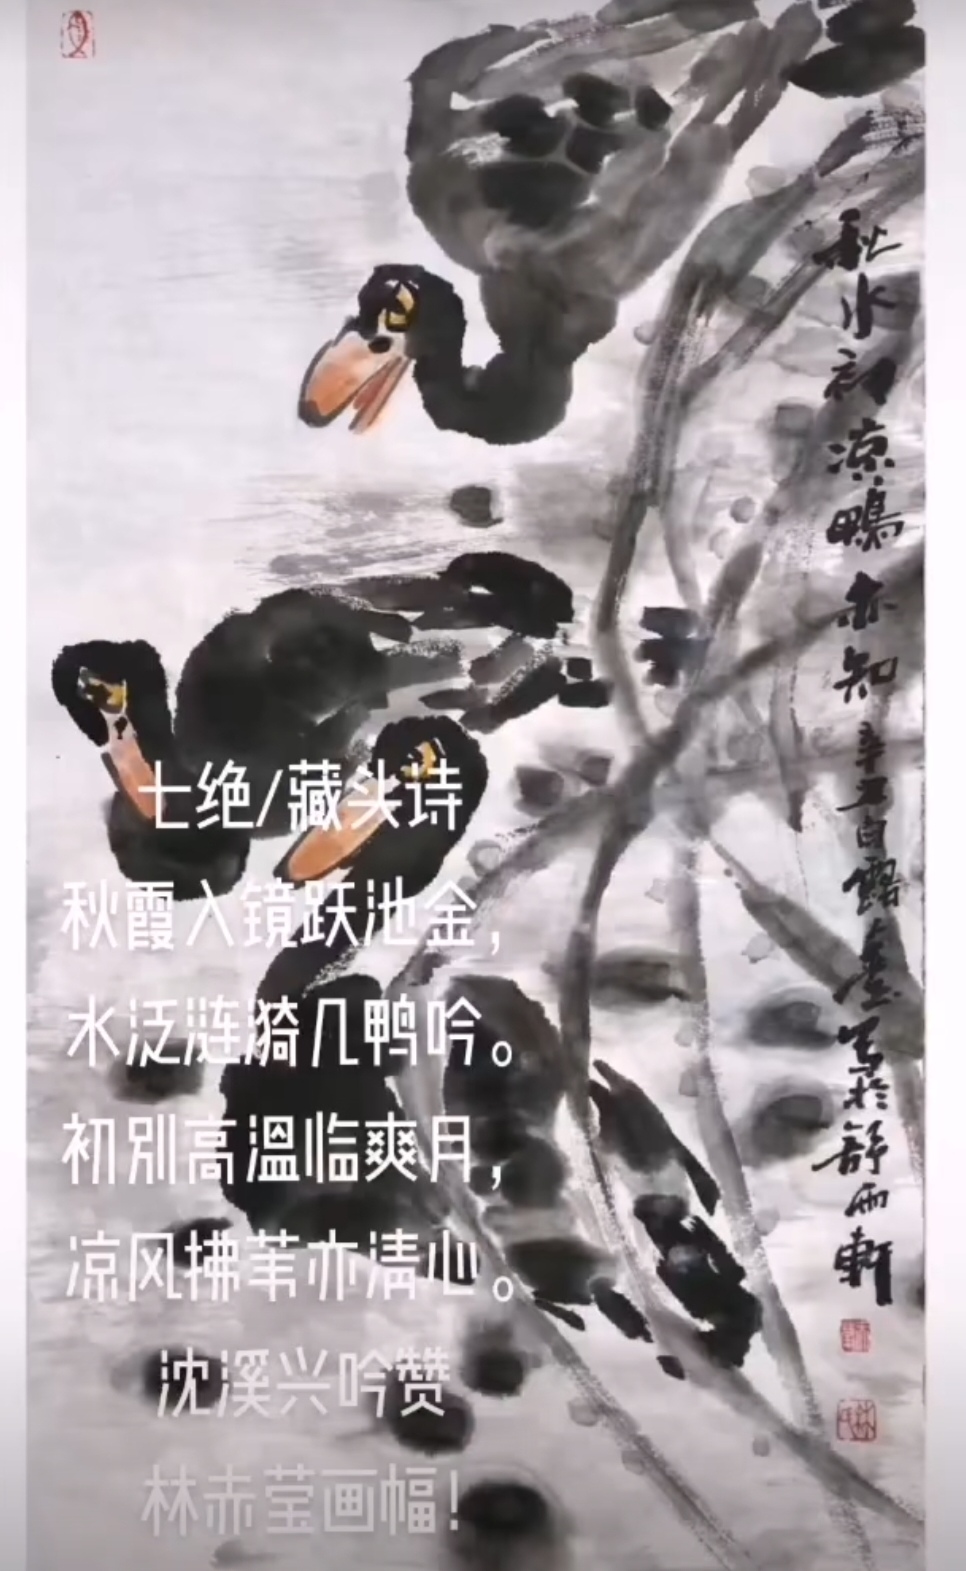 秋水初凉鸭亦知 辛丑白露 赤莹写於舒雨軒
七绝/藏头诗
秋霞入镜跃池金，
水泛涟漪几鸭吟。
初别高溫临爽月，
凉风拂苇亦清心。
沈溪兴吟赞
林赤莹画幅！